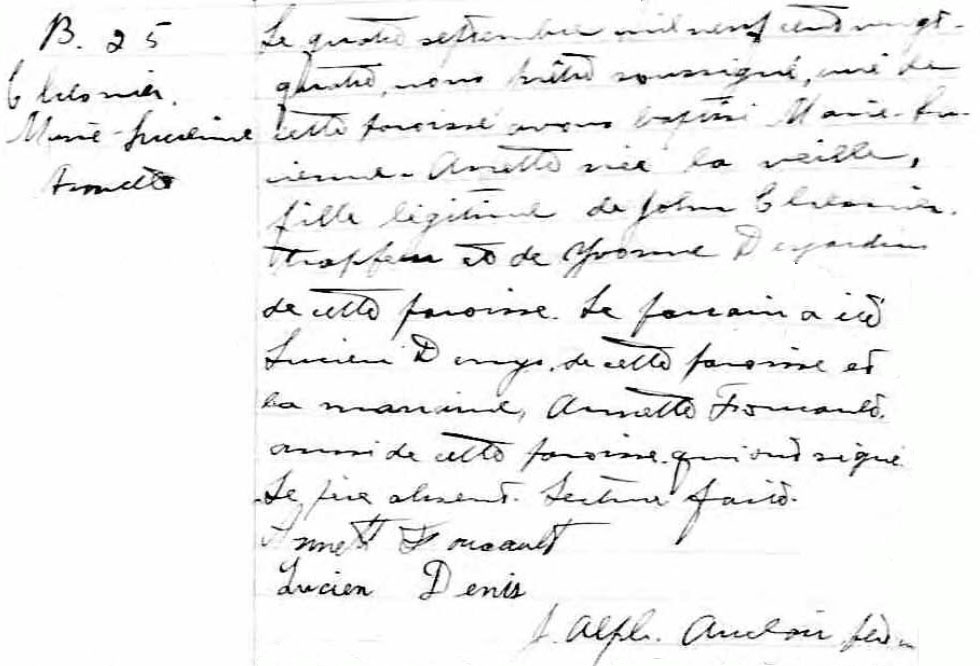 B. 25
Chresnier.
Marie-Lucienne
Annette
Le quatre septembre mil neuf cent vingt-
quatre, nous prêtre soussigné, curé de
cette paroisse avons baptisé Marie-Lu-
cienne-Annette née la veille,
fille légitime de John Chresnier.
trappeur et de Yvonne Desjardins
de cette paroisse. Le parrain a été
Lucien Denys, de cette paroisse et
la marraine, Annette Foucault,
aussi de cette paroisse. qui ont signé
Le père absent. Lecture faite.
Annette Foucault
Lucien Denis
J. Alph. Auclair